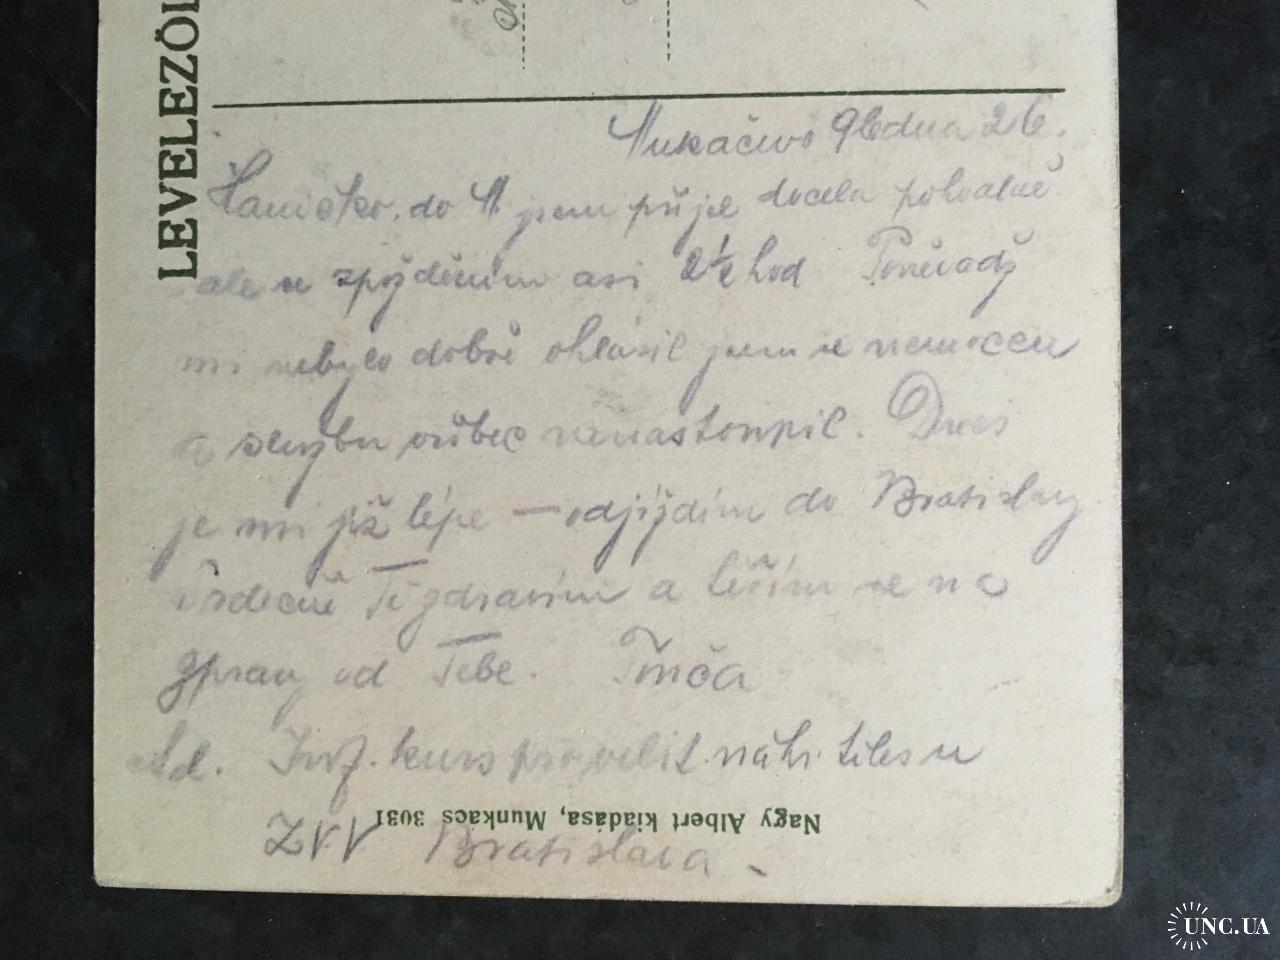 LEVELEZŐL
Mukačevo 9 ledna 26.
Haničko, do M jsem přijel docela pohodlně
ale se zpožděním asi 2 1/2 hod Poněvadž
mi nebylo dobře ohlásil jsem se nemocen
a službu vůbec nenastoupil. Dnes
je mi již lépe — odjíždím do Bratislavy.
Srdečně Tě zdravím a těším se na
zprav od Tebe.
Ad. Inf. kurs pro velit. náhr. tělesa
ZVV Bratislava -
Nagy Albert kiadása, Munkács 3031
UNC.UA